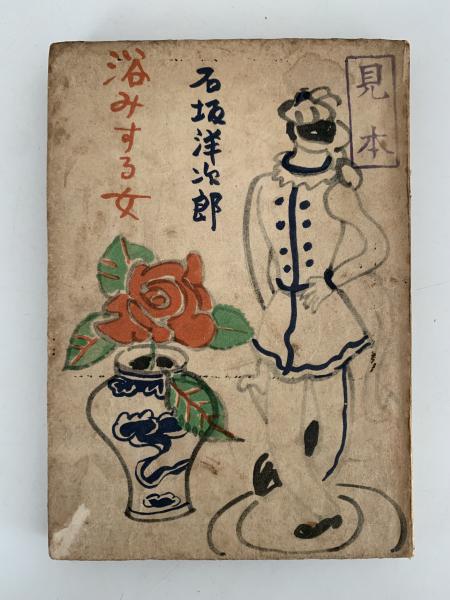 見本
石坂洋次郎
浴みする女